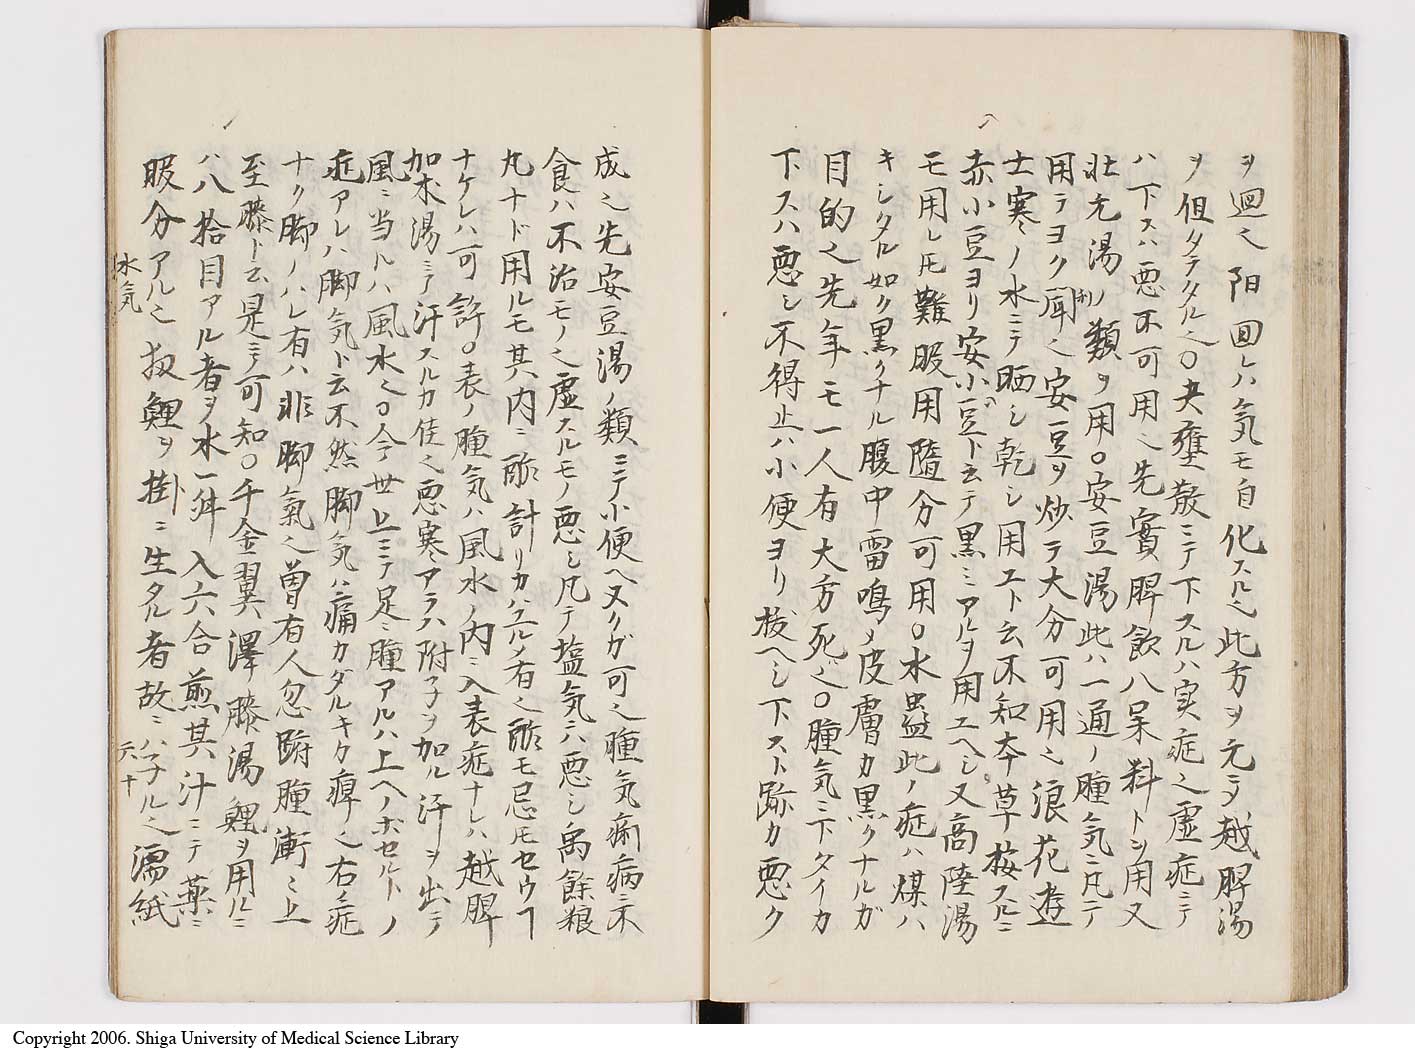 ヲ廻之陽回レハ気モ自化スル之此方ヲ元ニシテ越脾湯
ヲ但タテタル之〇夫壅散ニテ下スルハ実症之虚症ニテ
ハ下スハ悪不可用之先實脾飲八呆料トシ用又
壮元湯ノ類ヲ用〇安豆湯此ハ一通ノ腫気ニ凡テ
用テヨク聞之安豆ヲ炒テ大分可用之浪花遊
士寒ノ水ニテ晒シ乾シ用エト云不知本草按スルニ
赤小豆ヨリ安小豆ト云テ黒ミアルヲ用エヘシ又高陸湯
モ用レ㡳難服用隨分可用〇水蠱此ノ症ハ煤ハ
キシタル如ク黒クナル腹中雷鳴メ皮膚カ黒クナルガ
目的之先年モ一人有大方死之〇腫気ニ下タイカ
下スハ悪シ不得止ハ小便ヨリ抜ヘシ下スト跡カ悪ク
成之先安豆湯ノ類ニテ小便ヘヌクガ可之腫気痢病ニ不
食ハ不治モノ之虚スルモノ悪シ凡テ塩気ハ悪シ禹餘粮
丸ナド用ルモ其内ニ酢計リカハユルノ有之酢モ忌㡳セウヿ
ナケレハ可許〇表ノ腫気ハ風水ノ内ニ入表症ナレハ越脾
加朮湯ニテ汗スルカ佳之悪寒アラハ附子ヲ加ル汗ヲ出ニテ
風ニ当ルハ風水之〇今世上ニテ足ニ腫アルハ上ヘノボセルトノ
症アレハ脚気ト云不然脚気ハ痛カダルキカ痺之右ノ症
ナク脚ノハレ有ハ非脚氣之曽有人忽跗腫漸々上
至膝ト云是ニテ可知〇千金翼澤膝湯鯉ヲ用ルニ
八八拾目アル者ヲ水一舛入六合煎其汁ニテ薬ニ
服分アル之扨鯉ヲ掛ニ生タル者故ニハ子ル之濡紙
水気
六十
Copyright 2006. Shiga University of Medical Science Library